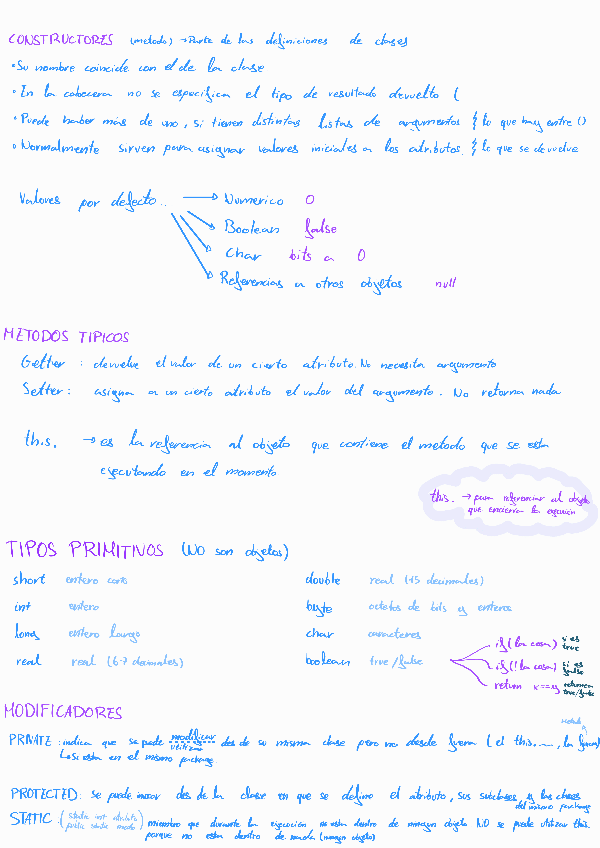 CONSTRUCTORES (metodo) → Parte de las definiciones de clases
• Su nombre coincide con el de la clase
• En la cabecera no se especifica el tipo de resultado devuelto (
• Puede haber más de uno, si tienen distintas listas de argumentos { lo que hay entre ()
• Normalmente sirven para asignar valores iniciales a los atributos. { lo que se devuelve
Valores por defecto..
→ Numerico 0
→ Boolean false
→ Char bits a 0
→ Referencias a otros objetos null
METODOS TIPICOS
Getter : devuelve el valor de un cierto atributo. No necesita argumento
Setter : asigna a un cierto atributo el valor del argumento. No retorna nada
this. → es la referencia al objeto que contiene el metodo que se esta
ejecutando en el momento
this. → para referenciar al objeto
que encierra la ejecución
TIPOS PRIMITIVOS (NO son objetos)
short entero corto
int entero
long entero largo
real real (6-7 decimales)
double real (15 decimales)
byte octetos de bits y enteros
char caracteres
boolean true/false
if (la cosa) si es true
if (! la cosa) si es false
return x==y returnea true/false
MODIFICADORES
PRIVATE : indica que se pude modificar utilizar des de su misma clase pero no desde fuera (el this.
Lo si esta en el mismo package.
PROTECTED: se puede des de la clase en que se define el atributo, sus subclases y las clases
del mismo package
STATIC : (static int atributo
public static modo) miembro que durante la ejecución no esta dentro de ningun objeto NO se puede utilizar this.
porque no esta dentro de nada (ningun objeto)